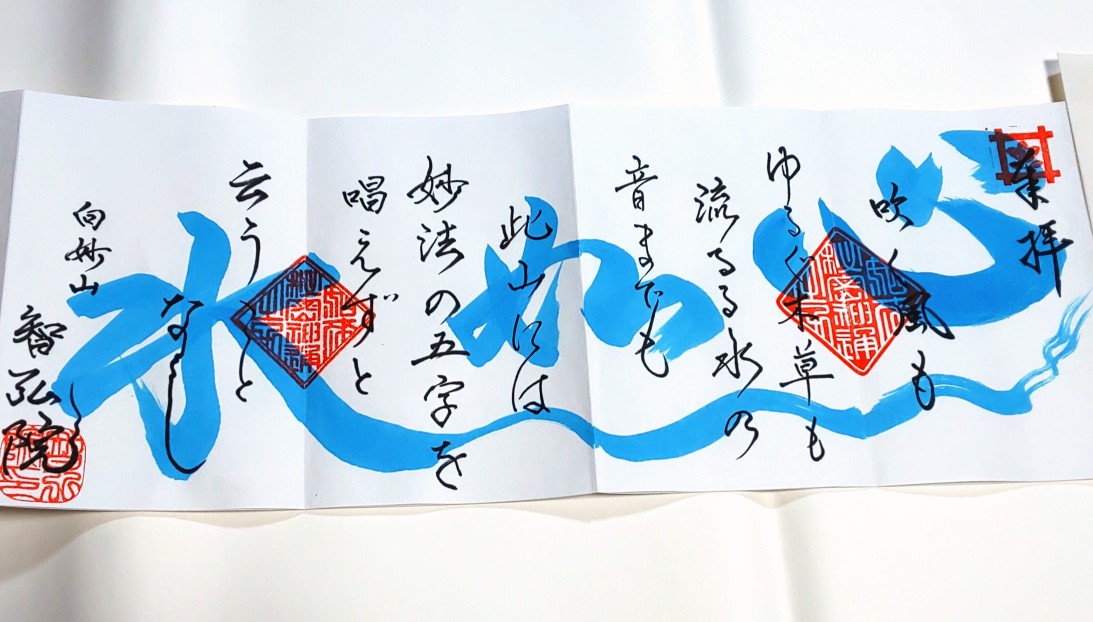 奉拝
心如水
吹く風も
ゆるぐ木草も
流るる水の
音までも
此山には
妙法の五字を
唱えずと
云うこと
なし
白妙山
智弘院